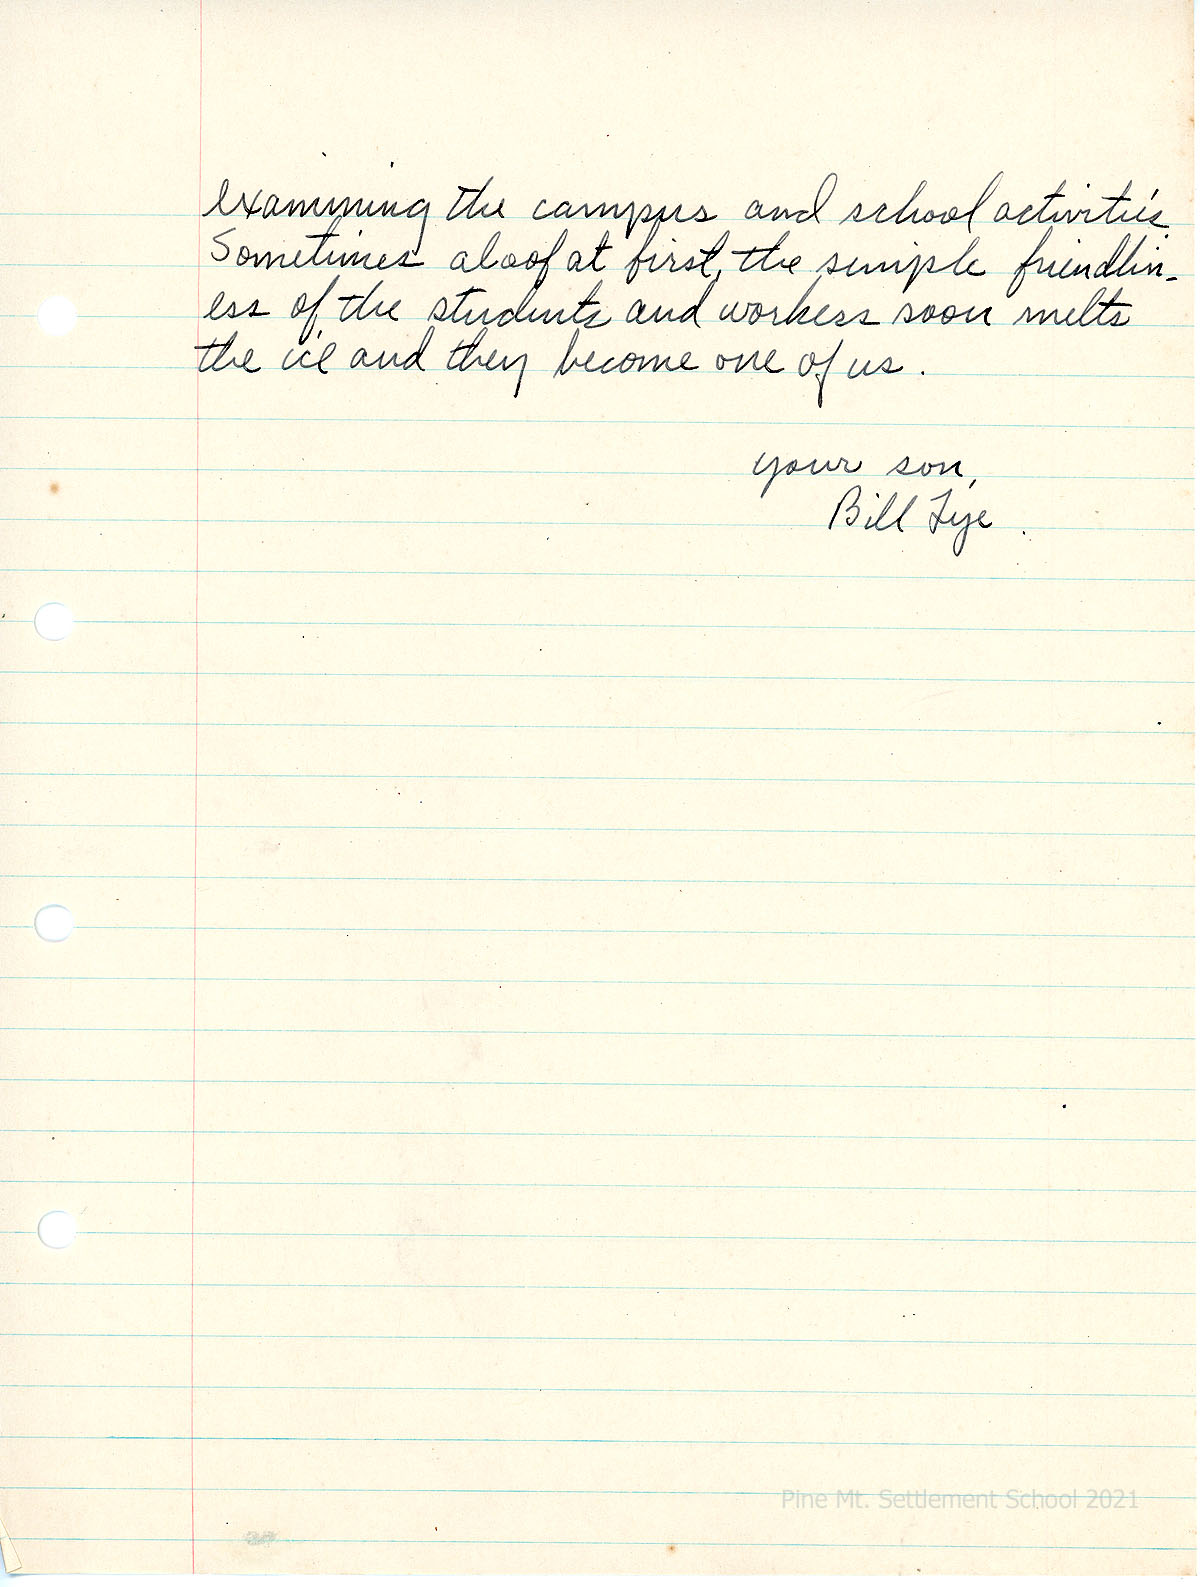 examining the campus and school activities.
Sometimes aloof at first, the simple friendlin-
ess of the students and workess soon melts
the ice and they become one of us.
your son,
Bill Tye.
Pine Mt. Settlement School 2021